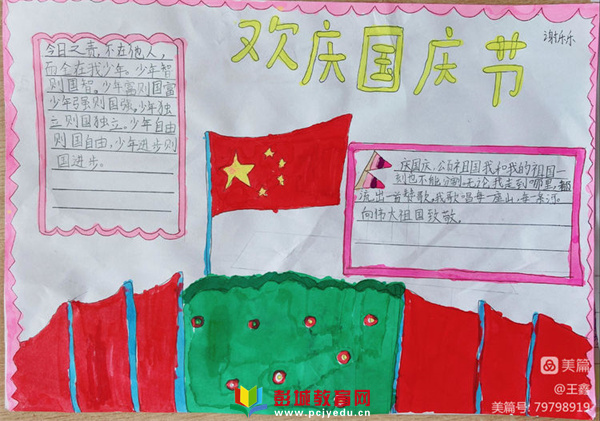 欢庆国庆节
谢乐乐
今日之责,不在他人,
而全在我少年。少年智
则国智,少年富则国富
少年强则国强,少年独
立则国独立。少年自由
则国自由,少年进步则
国进步。
庆国庆,公颂祖国我和我的祖国一
刻也不能分割,无论我走到哪里,都
流出一首赞歌。我歌唱每一座山,每一条河。
向伟大祖国致敬。
彭城教育网
www.pcjyedu.cn
美篇
@王鑫
美篇号:79798919